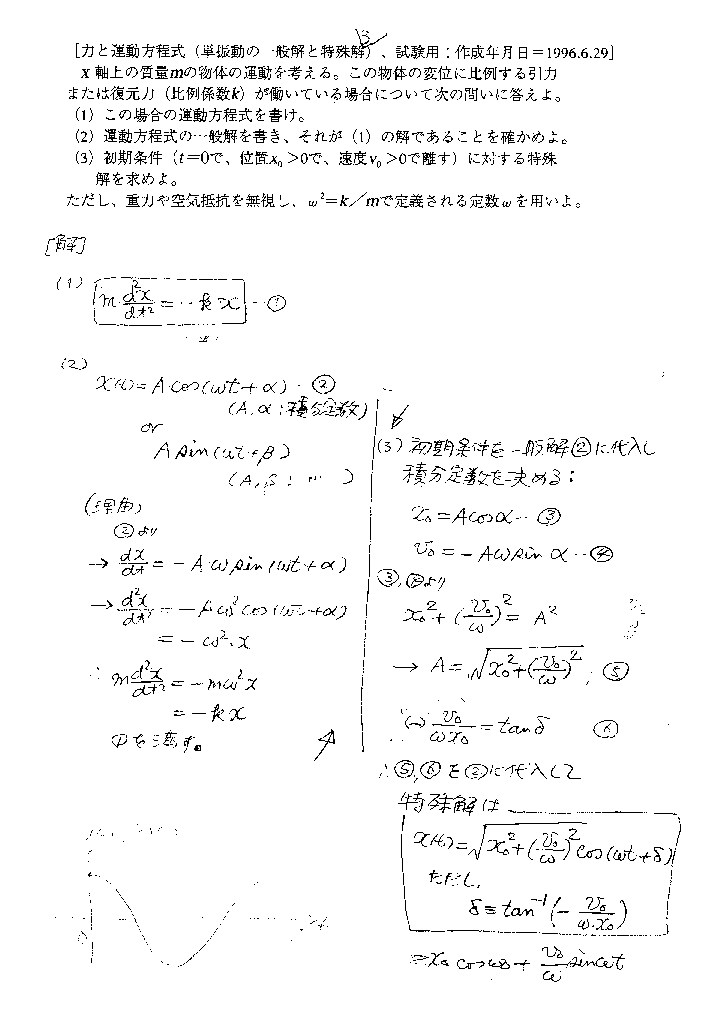 13
[力と運動方程式（単振動の一般解と特殊解）、試験用：作成年月日＝1996.6.29]
x 軸上の質量mの物体の運動を考える。この物体の変位に比例する引力
または復元力（比例係数k）が働いている場合について次の問いに答えよ。
(1) この場合の運動方程式を書け。
(2) 運動方程式の一般解を書き、それが（1）の解であることを確かめよ。
(3) 初期条件（t＝0で、位置x₀＞0で、速度v₀＞0で離す）に対する特殊
解を求めよ。
ただし、重力や空気抵抗を無視し、ω²＝k／mで定義される定数ωを用いよ。
[解]
(1)
m d²x/dt² = -kx …①
(2)
x(t) = A cos(ωt + α) … ②
(A, α : 積分定数)
or
A sin(ωt + β)
(A, β : 〃 )
(理由)
②より
→ dx/dt = -Aω sin(ωt + α)
→ d²x/dt² = -Aω² cos(ωt + α)
= -ω²・x
∴ m d²x/dt² = -mω²x
= -kx
①を満す。
(3) 初期条件を一般解②に代入し
積分定数を決める：
x₀ = A cos α … ③
v₀ = -Aω sin α … ④
③, ④より
x₀² + (v₀/ω)² = A²
→ A = √(x₀² + (v₀/ω)²) , ⑤
v₀/ωx₀ = tan δ ⑥
∴ ⑤, ⑥を②に代入して
特殊解は
x(t) = √(x₀² + (v₀/ω)²) cos(ωt + δ)
ただし,
δ = tan⁻¹(- v₀/ω・x₀)
= x₀ cos ωt + v₀/ω sin ωt
0